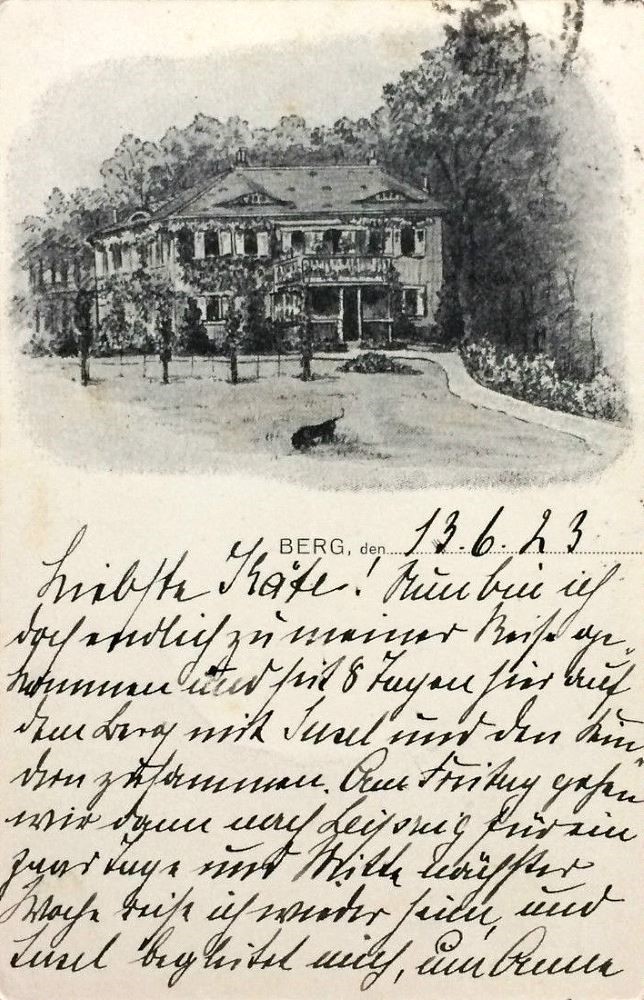 BERG, den 13.6.23
Liebste Käte! Nun bin ich
doch endlich zu meiner Reise ge-
kommen und seit 8 Tagen hier auf
dem Berg mit Insel und den Kin-
dern zusammen. Am Freitag gehen
wir dann nach Leipzig für ein
paar Tage und Mitte nächster
Woche reise ich wieder heim, und
Insel begleitet mich, um Anne